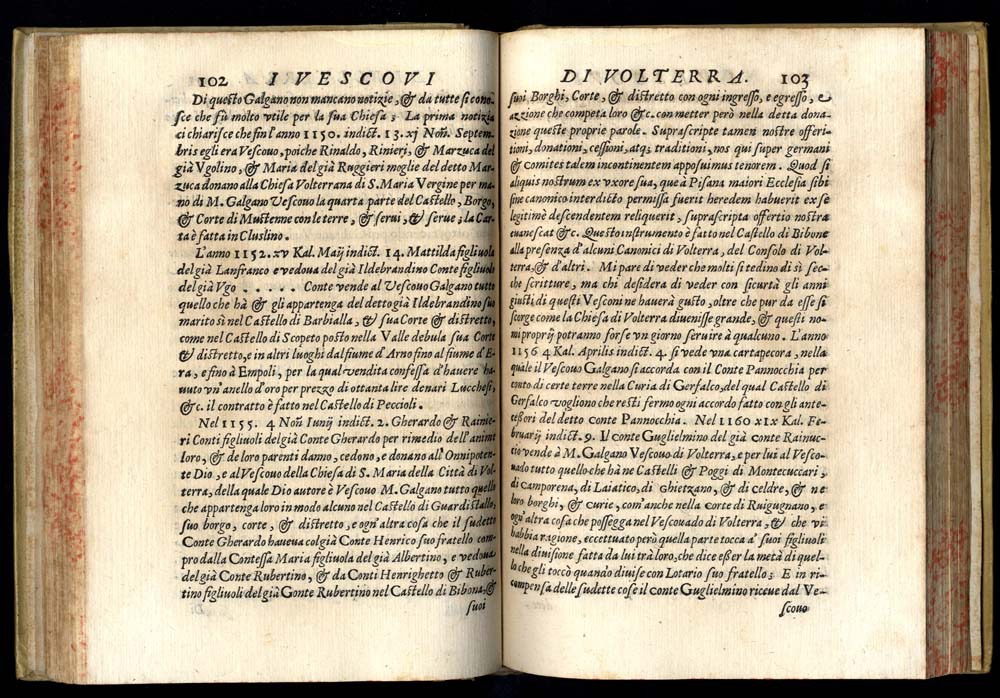 102 I VESCOVI
Di questo Galgano non mancano notizie, & da tutte si cono-
sce che fù molto vtile per la sua Chiesa; La prima notizia
ci chiarisce che fin l'anno 1150. indict. 13. xj Non̄. Septem-
bris egli era Vescouo, poiche Rinaldo, Rinieri, & Marzuca del
già Vgolino, & Maria del già Ruggieri moglie del detto Mar-
zuca donano alla Chiesa Volterrana di S. Maria Vergine per ma-
no di M. Galgano Vescouo la quarta parte del Castello, Borgo,
& Corte di Mustenne con le terre, & serui, & serue; la Car-
ta è fatta in Cluslino.
L'anno 1152. xv Kal. Maij indict. 14. Mattilda figliuola
del già Lanfranco e vedoua del già Ildebrandino Conte figliuolo
del già Vgo . . . . . Conte vende al Vescouo Galgano tutto
quello che hà & gli appartenga del detto già Ildebrandino suo
marito sì nel Castello di Barbialla, & sua Corte & distretto,
come nel Castello di Scopeto posto nella Valle debula sua Corte
& distretto, e in altri luoghi dal fiume d'Arno fino al fiume d'E-
ra, e fino à Empoli, per la qual vendita confessa d'hauere ha-
uuto vn'anello d'oro per prezzo di ottanta lire denari Lucchesi,
&c. il contratto è fatto nel Castello di Peccioli.
Nel 1155. 4 Non̄ Iunij indict. 2. Gherardo & Rainie-
ri Conti figliuoli del già Conte Gherardo per rimedio dell'anime
loro, & de loro parenti danno, cedono, e donano all'Onnipoten-
te Dio, e al Vescouo della Chiesa di S. Maria della Città di Vol-
terra, della quale Dio autore è Vescouo M. Galgano tutto quello
che appartenga loro in modo alcuno nel Castello di Guardistallo,
suo borgo, corte, & distretto, e ogn'altra cosa che il sudetto
Conte Gherardo haueua col già Conte Henrico suo fratello com-
pro dalla Contessa Maria figliuola del già Albertino, e vedoua
del già Conte Rubertino, & da Conti Henrighetto & Ruber-
tino figliuoli del già Gonte Rubertino nel Castello di Bibona, &
suoi
DI VOLTERRA. 103
suoi Borghi, Corte, & distretto con ogni ingresso, e egresso, e
azzione che competa loro &c. con metter però nella detta dona-
zione queste proprie parole. Suprascripte tamen nostre offeri-
tioni, donationi, cessioni, atq; traditioni, nos qui super germani
& comites talem incontinentem apposuimus tenorem. Quod si
aliquis nostrum ex vxore sua, que à Pisana maiori Ecclesia sibi
sine canonico interdicto permissa fuerit heredem habuerit ex se
legitimè descendentem reliquerit, suprascripta offertio nostra
euanescat &c. Questo instrumento è fatto nel Castello di Bibone
alla presenza d'alcuni Canonici di Volterra, del Consolo di Vol-
terra, & d'altri. Mi pare di veder che molti si tedino di sì sec-
che scritture, ma chi desidera di veder con sicurtà gli anni
giusti di questi Vesconi ne hauerà gusto, oltre che pur da esse si
scorge come la Chiesa di Volterra diuenisse grande, & questi no-
mi proprij potranno forse vn giorno seruire à qualcuno. L'anno
1156 4 Kal. Aprilis indict. 4. si vede vna cartapecora, nella
quale il Vescouo Galgano si accorda con il Conte Pannocchia per
conto di certe terre nella Curia di Gerfalco, del qual Castello di
Gerfalco vogliono che resti fermo ogni accordo fatto con gli ante-
cessori del detto Conte Pannocchia. Nel 1160 xix Kal. Fe-
bruarij indict. 9. Il conte Guglielmino del già conte Rainuc-
cio vende à M. Galgano Vescouo di Volterra, e per lui al Vesco-
uado tutto quello che hà ne Castelli & Poggi di Montecuccari,
di camporena, di Laiatico, di Ghietzano, & di celdre, & ne
loro borghi, & curie, com'anche nella corte di Ruigugnano, e
ogn'altra cosa che possegga nel Vescouado di Volterra, & che vi
habbia ragione, eccettuato però quella parte tocca a' suoi figliuoli
nella diuisione fatta da lui trà loro, che dice esser la metà di quel-
lo che gli toccò quando diuise con Lotario suo fratello; E in ri-
compensa delle sudette cose il conte Guglielmino riceue dal Ve-
scouo